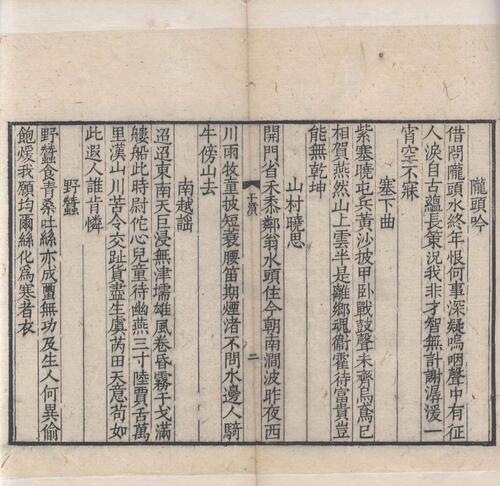 隴頭吟
借問隴頭水終年恨何事深疑嗚咽聲中有征
人淚自古蘊長策況我非才智無計謝潺湲一
宵空不寐
塞下曲
紫塞曉屯兵黃沙披甲臥戰鼓聲未齊烏鳶已
相賀燕然山上雲半是離鄉魂衞霍待富貴豈
能無乾坤
山村曉思
開門省禾黍鄰翁水頭住今朝南澗波昨夜西
川雨牧童披短蓑腰笛期煙渚不問水邊人騎
牛傍山去
南越謠
迢迢東南天巨浸無津壖雄風卷昏霧干戈滿
樓船此時尉佗心兒童待幽燕三寸陸賈舌萬
里漢山川苦令交趾貨盡生虞芮田天意苟如
此遐人誰肯憐
野蠶
野蠶食青桑吐絲亦成蠒無功及生人何異偷
飽煖我願均爾絲化爲寒者衣
二